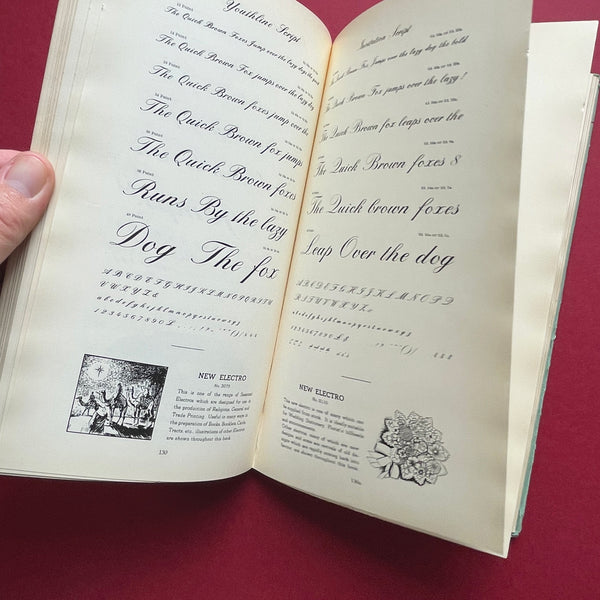 Youthline Script
The Quick Brown Foxes Jump over the lazy dogs the
The Quick Brown Fox jumps over the lazy dog
The Quick Brown foxes jump over the
The Quick Brown fox jumps
The Quick Brown foxes
Runs By the lazy
Dog The fox
A B C D E F G H I J K L M N O P Q R S T U
V W X Y Z &
a b c d e f g h i j k l m n o p q r s t u v w x y z
1 2 3 4 5 6 7 8 9 0 £
NEW ELECTRO
No. 3075
This is one of the range of Seasonal
Electros which are designed for use in
the production of Religious, General and
Trade Printing. Useful in many ways in
the preparation of Books, Booklets, Cards,
Tracts, etc., illustrations of other Electros
are shown throughout this book.
130
Invitation Script
Quick Brown Fox Jumps over the lazy dog the
The Quick Brown Fox jumps over the lazy !
The Quick Brown fox leaps over the
The Quick Brown foxes 8
The Quick brown foxes
Leap Over the dog
A B C D E F G H I J K L M N O P Q
R S T U V W X Y Z
a b c d e f g h i j k l m n o p q r s t u v w x y z
1 2 3 4 5 6 7 8 9 0
NEW ELECTRO
This new electro is one of many which can
be supplied from stock. It is ideally suitable
for Wedding Stationery, Florists' billheads
and
Other
are shown throughout this
130a